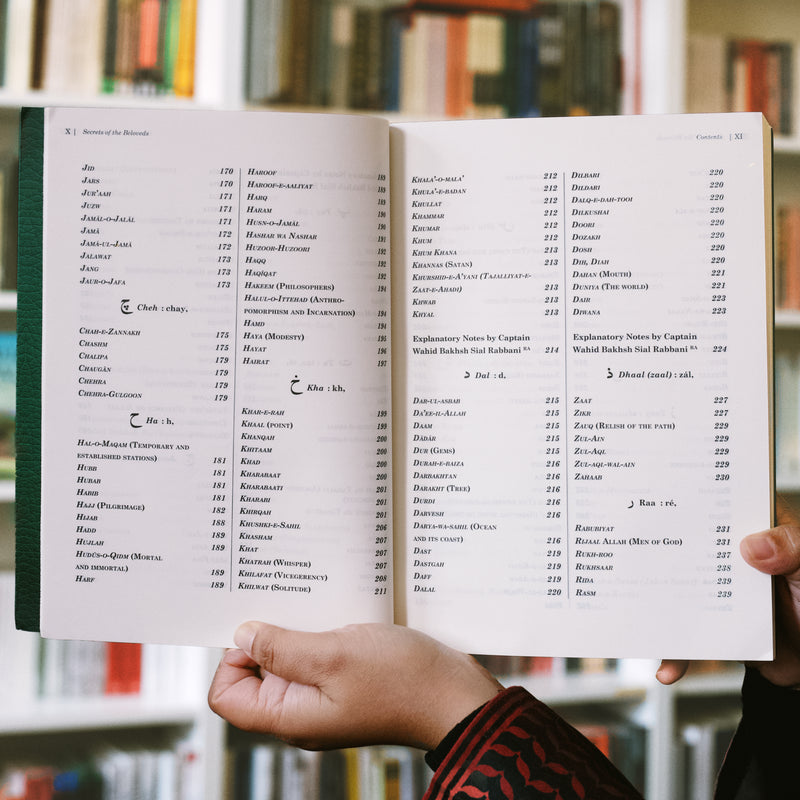 X | Secrets of the Beloveds
JID 170
JARS 170
JUR'AAH 171
JUZW 171
JAMÁL-O-JALÁL 171
JAMÁ 172
JAMÁ-UL-JAMÁ 172
JALAWAT 173
JANG 173
JAUR-O-JAFA 173
چ Cheh : chay,
CHAH-E-ZANNAKH 175
CHASHM 175
CHALIPA 179
CHAUGÁN 179
CHEHRA 179
CHEHRA-GULGOON 179
ح Ha : h,
HAL-O-MAQAM (TEMPORARY AND
ESTABLISHED STATIONS) 181
HUBB 181
HUBAB 181
HABIB 181
HAJJ (PILGRIMAGE) 182
HIJAB 188
HADD 189
HUJLAH 189
HUDÚS-O-QIDM (MORTAL
AND IMMORTAL) 189
HARF 189
HAROOF 189
HAROOF-E-AALIYAT 189
HARQ 190
HARAM 190
HUSN-O-JAMÁL 191
HASHAR WA NASHAR 191
HUZOOR-HUZOORI 191
HAQQ 192
HAQÍQAT 192
HAKEEM (PHILOSOPHERS) 194
HALUL-O-ITTEHAD (ANTHRO-
POMORPHISM AND INCARNATION) 194
HAMD 194
HAYA (MODESTY) 195
HAYAT 196
HAIRAT 197
خ Kha : kh,
KHAR-E-RAH 199
KHAAL (POINT) 199
KHANQAH 200
KHITAAM 200
KHAD 200
KHARABAAT 200
KHARABAATI 201
KHARABI 201
KHIRQAH 201
KHUSHKI-E-SAHIL 206
KHASHAM 207
KHAT 207
KHATRAH (WHISPER) 207
KHILAFAT (VICEGERENCY) 208
KHILWAT (SOLITUDE) 211
Contents | XI
KHALA'-O-MALA' 212
KHULA'-E-BADAN 212
KHULLAT 212
KHAMMAR 212
KHUMAR 212
KHUM 212
KHUM KHANA 213
KHANNAS (SATAN) 213
KHURSHID-E-A'YANI (TAJALLIYAT-E-
ZAAT-E-AHADI) 213
KHWAB 213
KHYAL 213
Explanatory Notes by Captain
Wahid Bakhsh Sial Rabbani RA 214
د Dal : d,
DAR-UL-ASBAB 215
DA'EE-IL-ALLAH 215
DAAM 215
DÁDÁR 215
DUR (GEMS) 215
DURAH-E-BAIZA 216
DARBAKHTAN 216
DARAKHT (TREE) 216
DURDI 216
DARVESH 216
DARYA-WA-SAHIL (OCEAN
AND ITS COAST) 216
DAST 219
DASTGAH 219
DAFF 219
DALAL 220
DILBARI 220
DILDARI 220
DALQ-E-DAH-TOOI 220
DILKUSHAI 220
DOORI 220
DOZAKH 220
DOSH 220
DIH, DIAH 220
DAHAN (MOUTH) 221
DUNIYA (THE WORLD) 221
DAIR 223
DIWANA 223
Explanatory Notes by Captain
Wahid Bakhsh Sial Rabbani RA 224
ذ Dhaal (zaal) : zál,
ZAAT 227
ZIKR 227
ZAUQ (RELISH OF THE PATH) 229
ZUL-AIN 229
ZUL-AQL 229
ZUL-AQL-WAL-AIN 229
ZAHAAB 230
ر Raa : ré,
RABUBIYAT 231
RIJAAL ALLAH (MEN OF GOD) 231
RUKH-ROO 237
RUKHSAAR 238
RIDA 239
RASM 239